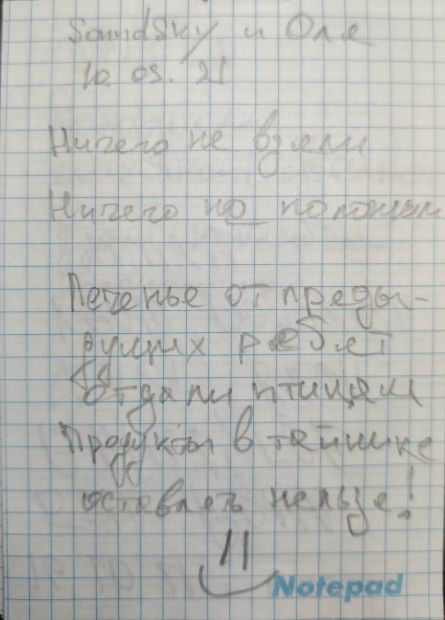 SoundSky и Оля
10.05.21
Ничего не взяли
Ничего но положили
Печенье от преды-
дущих ребят
отдали птицам
Продукты в тайнике
оставлять нельзя!
Notepad